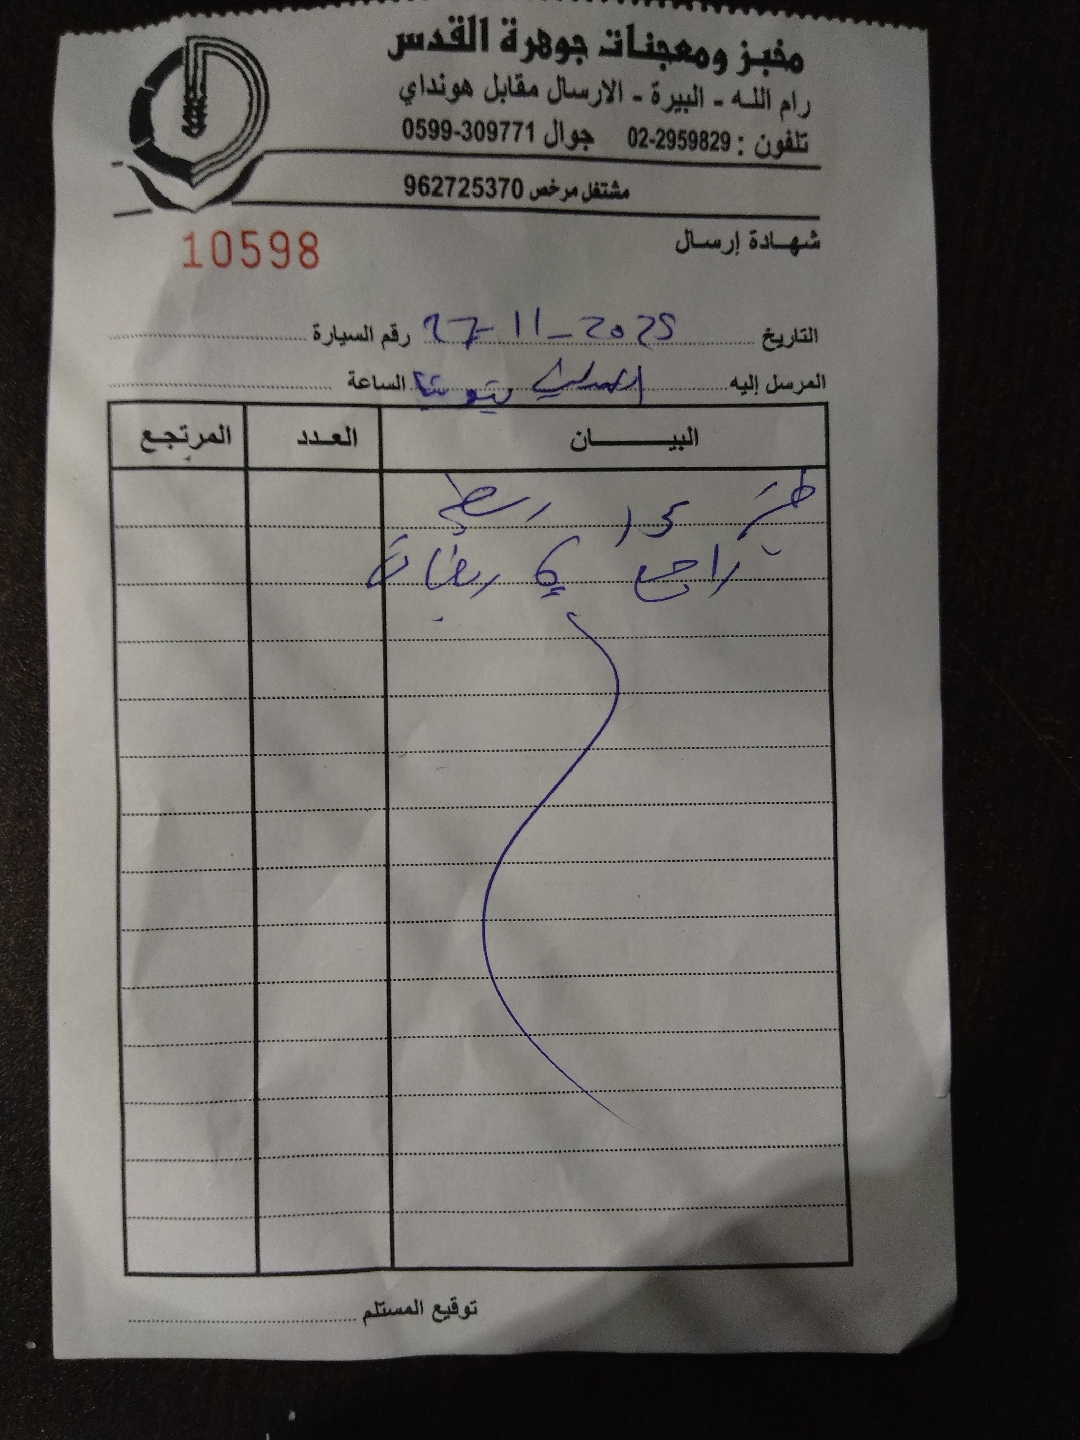 مخبز ومعجنات جوهرة القدس
رام الله - البيرة - الارسال مقابل هونداي
تلفون : 02-2959829 جوال 0599-309771
مشتغل مرخص 962725370
شهادة إرسال
10598
التاريخ 27-11-2025 رقم السيارة
المرسل إليه الساعة
البيان العدد المرتجع
راجع
توقيع المستلم